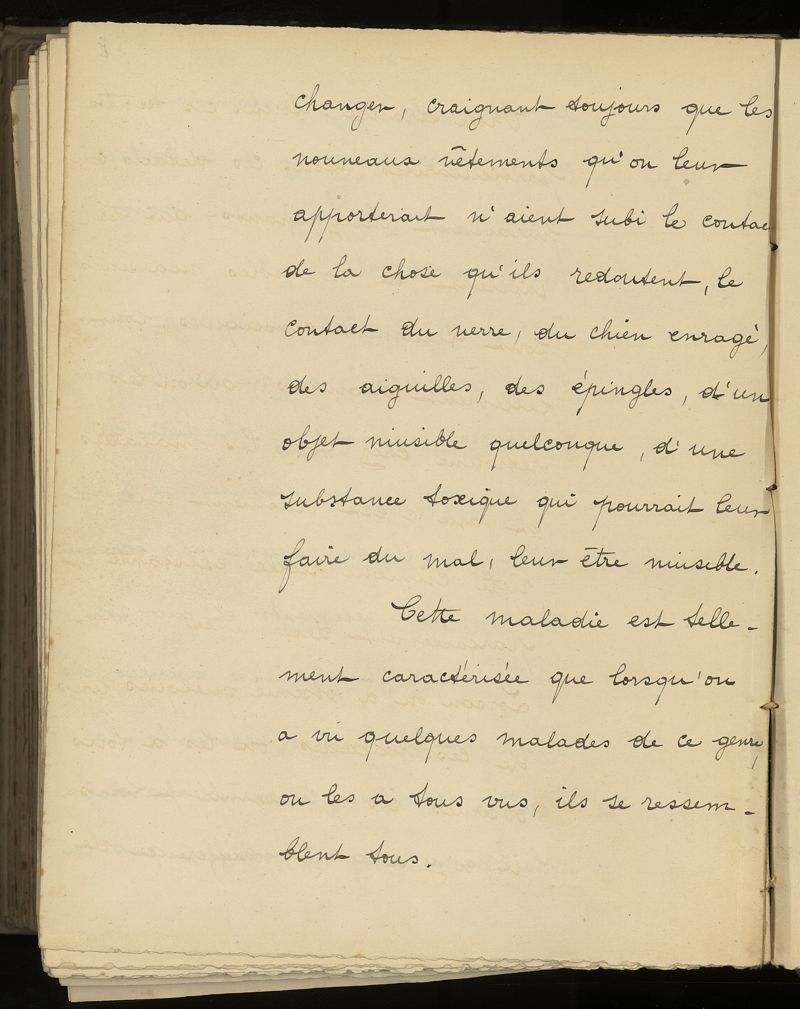 changer, craignant toujours que les
nouveaux vêtements qu'on leur
apporterait n'aient subi le contac
de la chose qu'ils redoutent, le
contact du verre, du chien enragé,
des aiguilles, des épingles, d'un
objet nuisible quelconque, d'une
substance toxique qui pourrait leur
faire du mal, leur être nuisible.
Cette maladie est telle-
ment caractérisée que lorsqu'on
a vu quelques malades de ce genre,
on les a tous vus, ils se ressem-
blent tous.